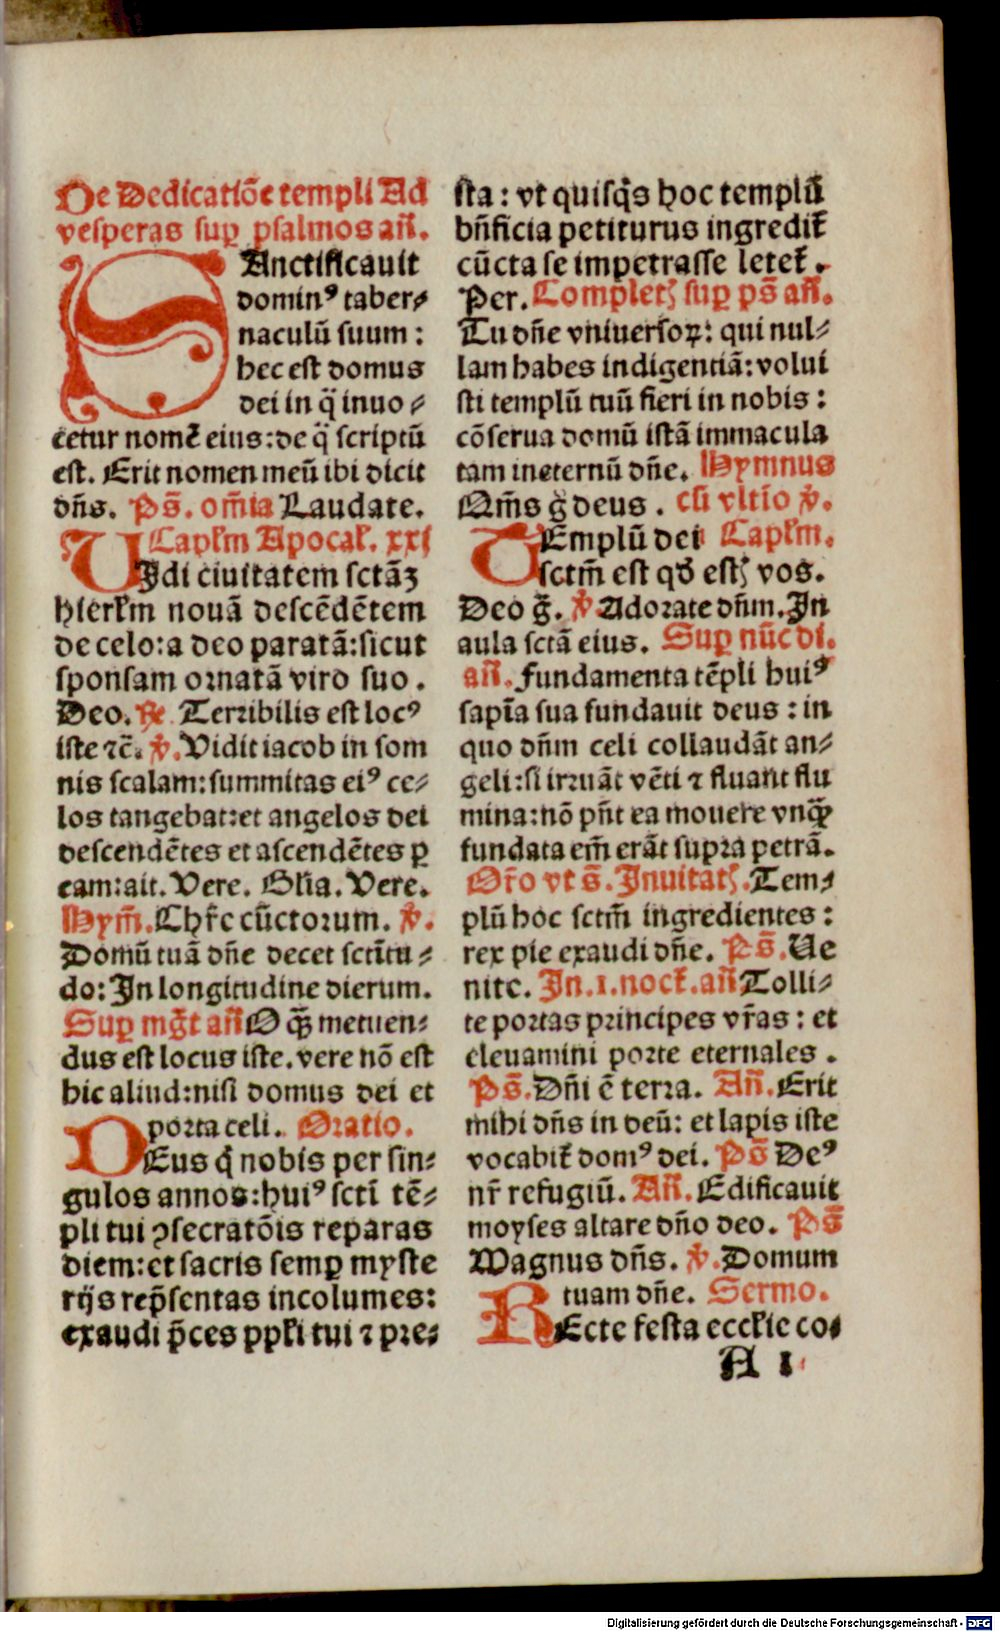 De Dedicatiõe templi Ad
vesperas suꝑ psalmos añ.
SAnctificauit
dominꝰ taber⸗
naculũ suum :
hec est domus
dei in q̃ inuo⸗
cetur nomẽ eius: de q̃ scriptũ
est. Erit nomen meũ ibi dicit
dñs. Ps̃. om̃ia Laudate.
Capl̃m Apocal̃. xxj
UIdi ciuitatem sctãꝫ
hierl̃m nouã descẽdẽtem
de celo: a deo paratã: sicut
sponsam ornatã viro suo .
Deo. ℞ Terribilis est locꝰ
iste ⁊c̃. ℣. Vidit iacob in som
nis scalam: summitas eiꝰ ce⸗
los tangebat: et angelos dei
descendẽtes et ascendẽtes ꝑ
eam: ait. Vere. Glĩa. Vere.
Hym̃. Chr̃e cũctorum. ℣.
Domũ tuã dñe decet sctĩtu⸗
do: In longitudine dierum.
Suꝑ mg̃t añ O q̃ꝫ metuen⸗
dus est locus iste. vere nõ est
hic aliud: nisi domus dei et
porta celi. Oratio.
DEus q̃ nobis per sin⸗
gulos annos: huiꝰ sctĩ tẽ⸗
pli tui ꝯsecratõis reparas
diem: et sacris semꝑ myste
rijs rep̃sentas incolumes:
exaudi p̃ces ppl̃i tui ⁊ pre⸗
sta : vt quisq̃s hoc templũ
bñficia petiturus ingredit̃
cũcta se impetrasse letet̃ .
Per. Completꝫ suꝑ ps̃ añ.
Tu dñe vniuersoꝝ: qui nul⸗
lam habes indigentiã: volui
sti templũ tuũ fieri in nobis :
cõserua domũ istã immacula
tam ineternũ dñe. Hymnus
Om̃s g̃ deus . cũ vltĩo ℣.
TEmplũ dei Capl̃m.
sctm̃ est qď estꝫ vos.
Deo g̃. ℣ Adorate dñm. In
aula sctã eius. Suꝑ nũc di.
añ. Fundamenta tẽpli huiꝰ
sapĩa sua fundauit deus : in
quo dñm celi collaudãt an⸗
geli: si irruãt vẽti ⁊ fluant flu
mina: nõ pñt ea mouere vnq̃ꝫ
fundata em̃ erãt supra petrã.
Or̃o vt s̃. Inuitatꝫ. Tem⸗
plũ hoc sctm̃ ingredientes :
rex pie exaudi dñe. Ps̃. Ue
nite. In .1. noct̃. añ Tolli⸗
te portas principes vr̃as : et
eleuamini porte eternales .
Ps̃. Dñi ẽ terra. Añ. Erit
mihi dñs in deũ: et lapis iste
vocabit̃ domꝰ dei. Ps̃ Deꝰ
nr̃ refugiũ. Añ. Edificauit
moyses altare dño deo. Ps̃
Magnus dñs. ℣. Domum
tuam dñe. Sermo.
REcte festa eccl̃ie co⸗
A 1
Digitalisierung gefördert durch die Deutsche Forschungsgemeinschaft - DFG